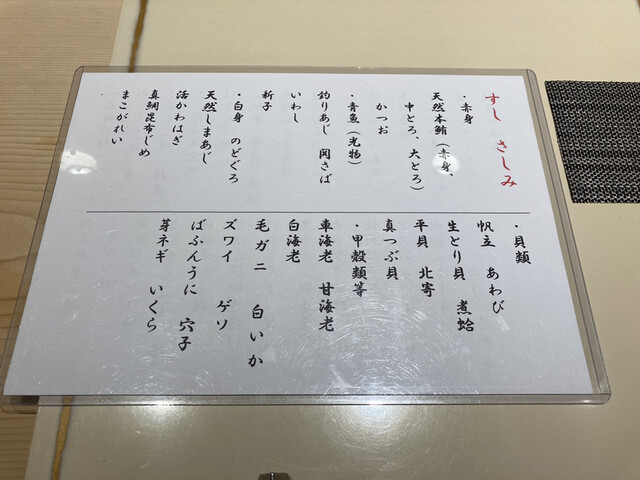 すし さしみ
・赤身
天然本鮪（赤身、
中とろ、大とろ）
かつお
・青魚（光物）
釣りあじ 関さば
いわし
新子
・白身 のどぐろ
天然しまあじ
活かわはぎ
真鯛昆布じめ
まこがれい
・貝類
帆立 あわび
生とり貝 煮蛤
平貝 北寄
真つぶ貝
・甲殻類等
車海老 甘海老
白海老
毛ガニ 白いか
ズワイ ゲソ
ばふんうに 穴子
芽ネギ いくら